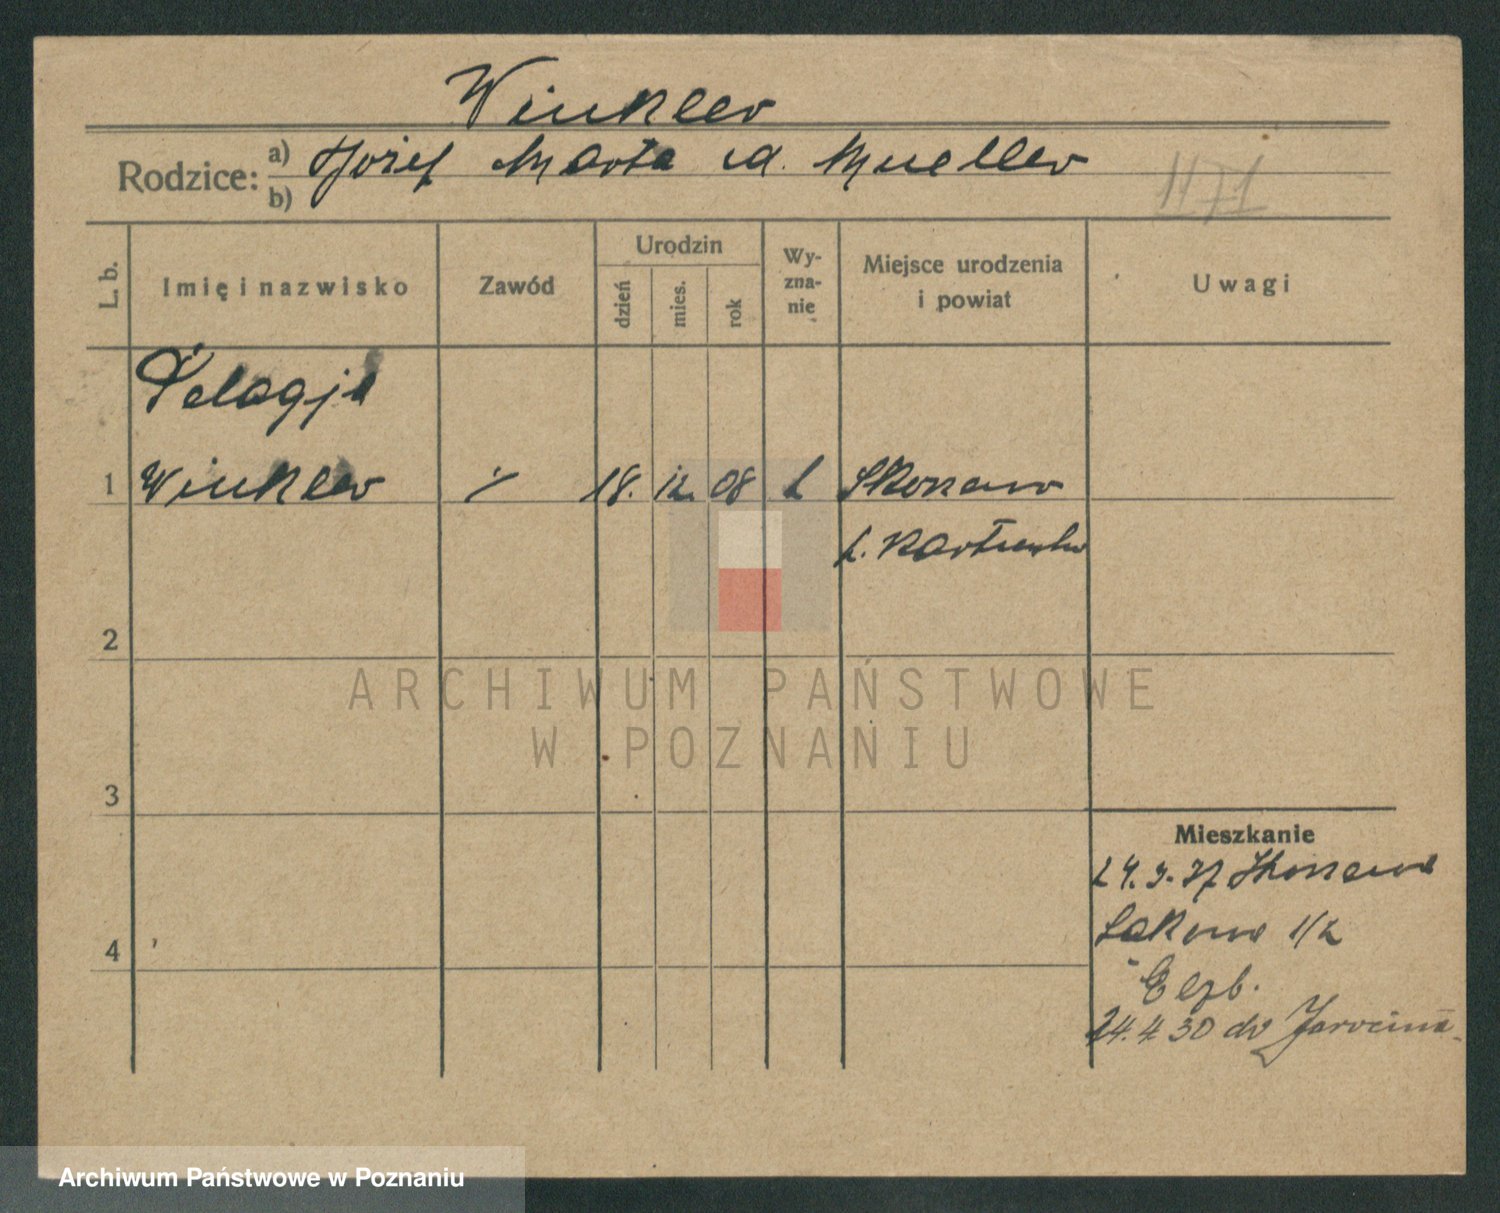 Winkler
Rodzice: a) Józef Marta u. Mueller
b)
1171
L. b.
Imię i nazwisko
Zawód
Urodzin
dzień
mies.
rok
Wy-
zna-
nie
Miejsce urodzenia
i powiat
Uwagi
Pelagja
1 Winkler 18. 12. 08
2
3
4
Mieszkanie
1/2
24. 4. 30 do Jarocina
ARCHIWUM PAŃSTWOWE
W POZNANIU
Archiwum Państwowe w Poznaniu